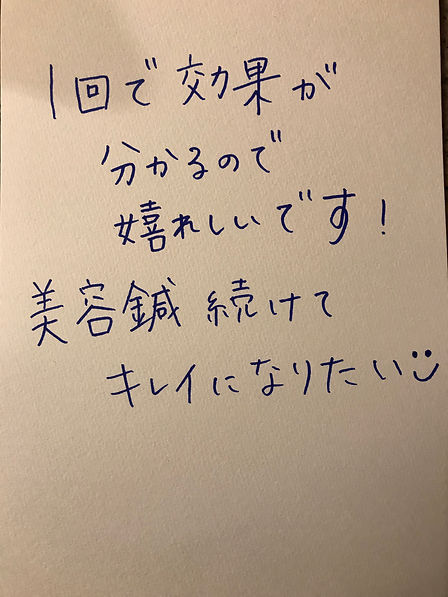 1回で効果が
分かるので
嬉れしいです!
美容鍼続けて
キレイになりたい☺